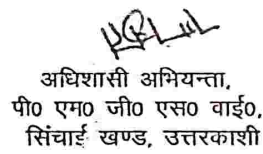 अधिशासी अभियन्ता,
पी० एम० जी० एस० वाई०,
सिंचाई खण्ड, उत्तरकाशी